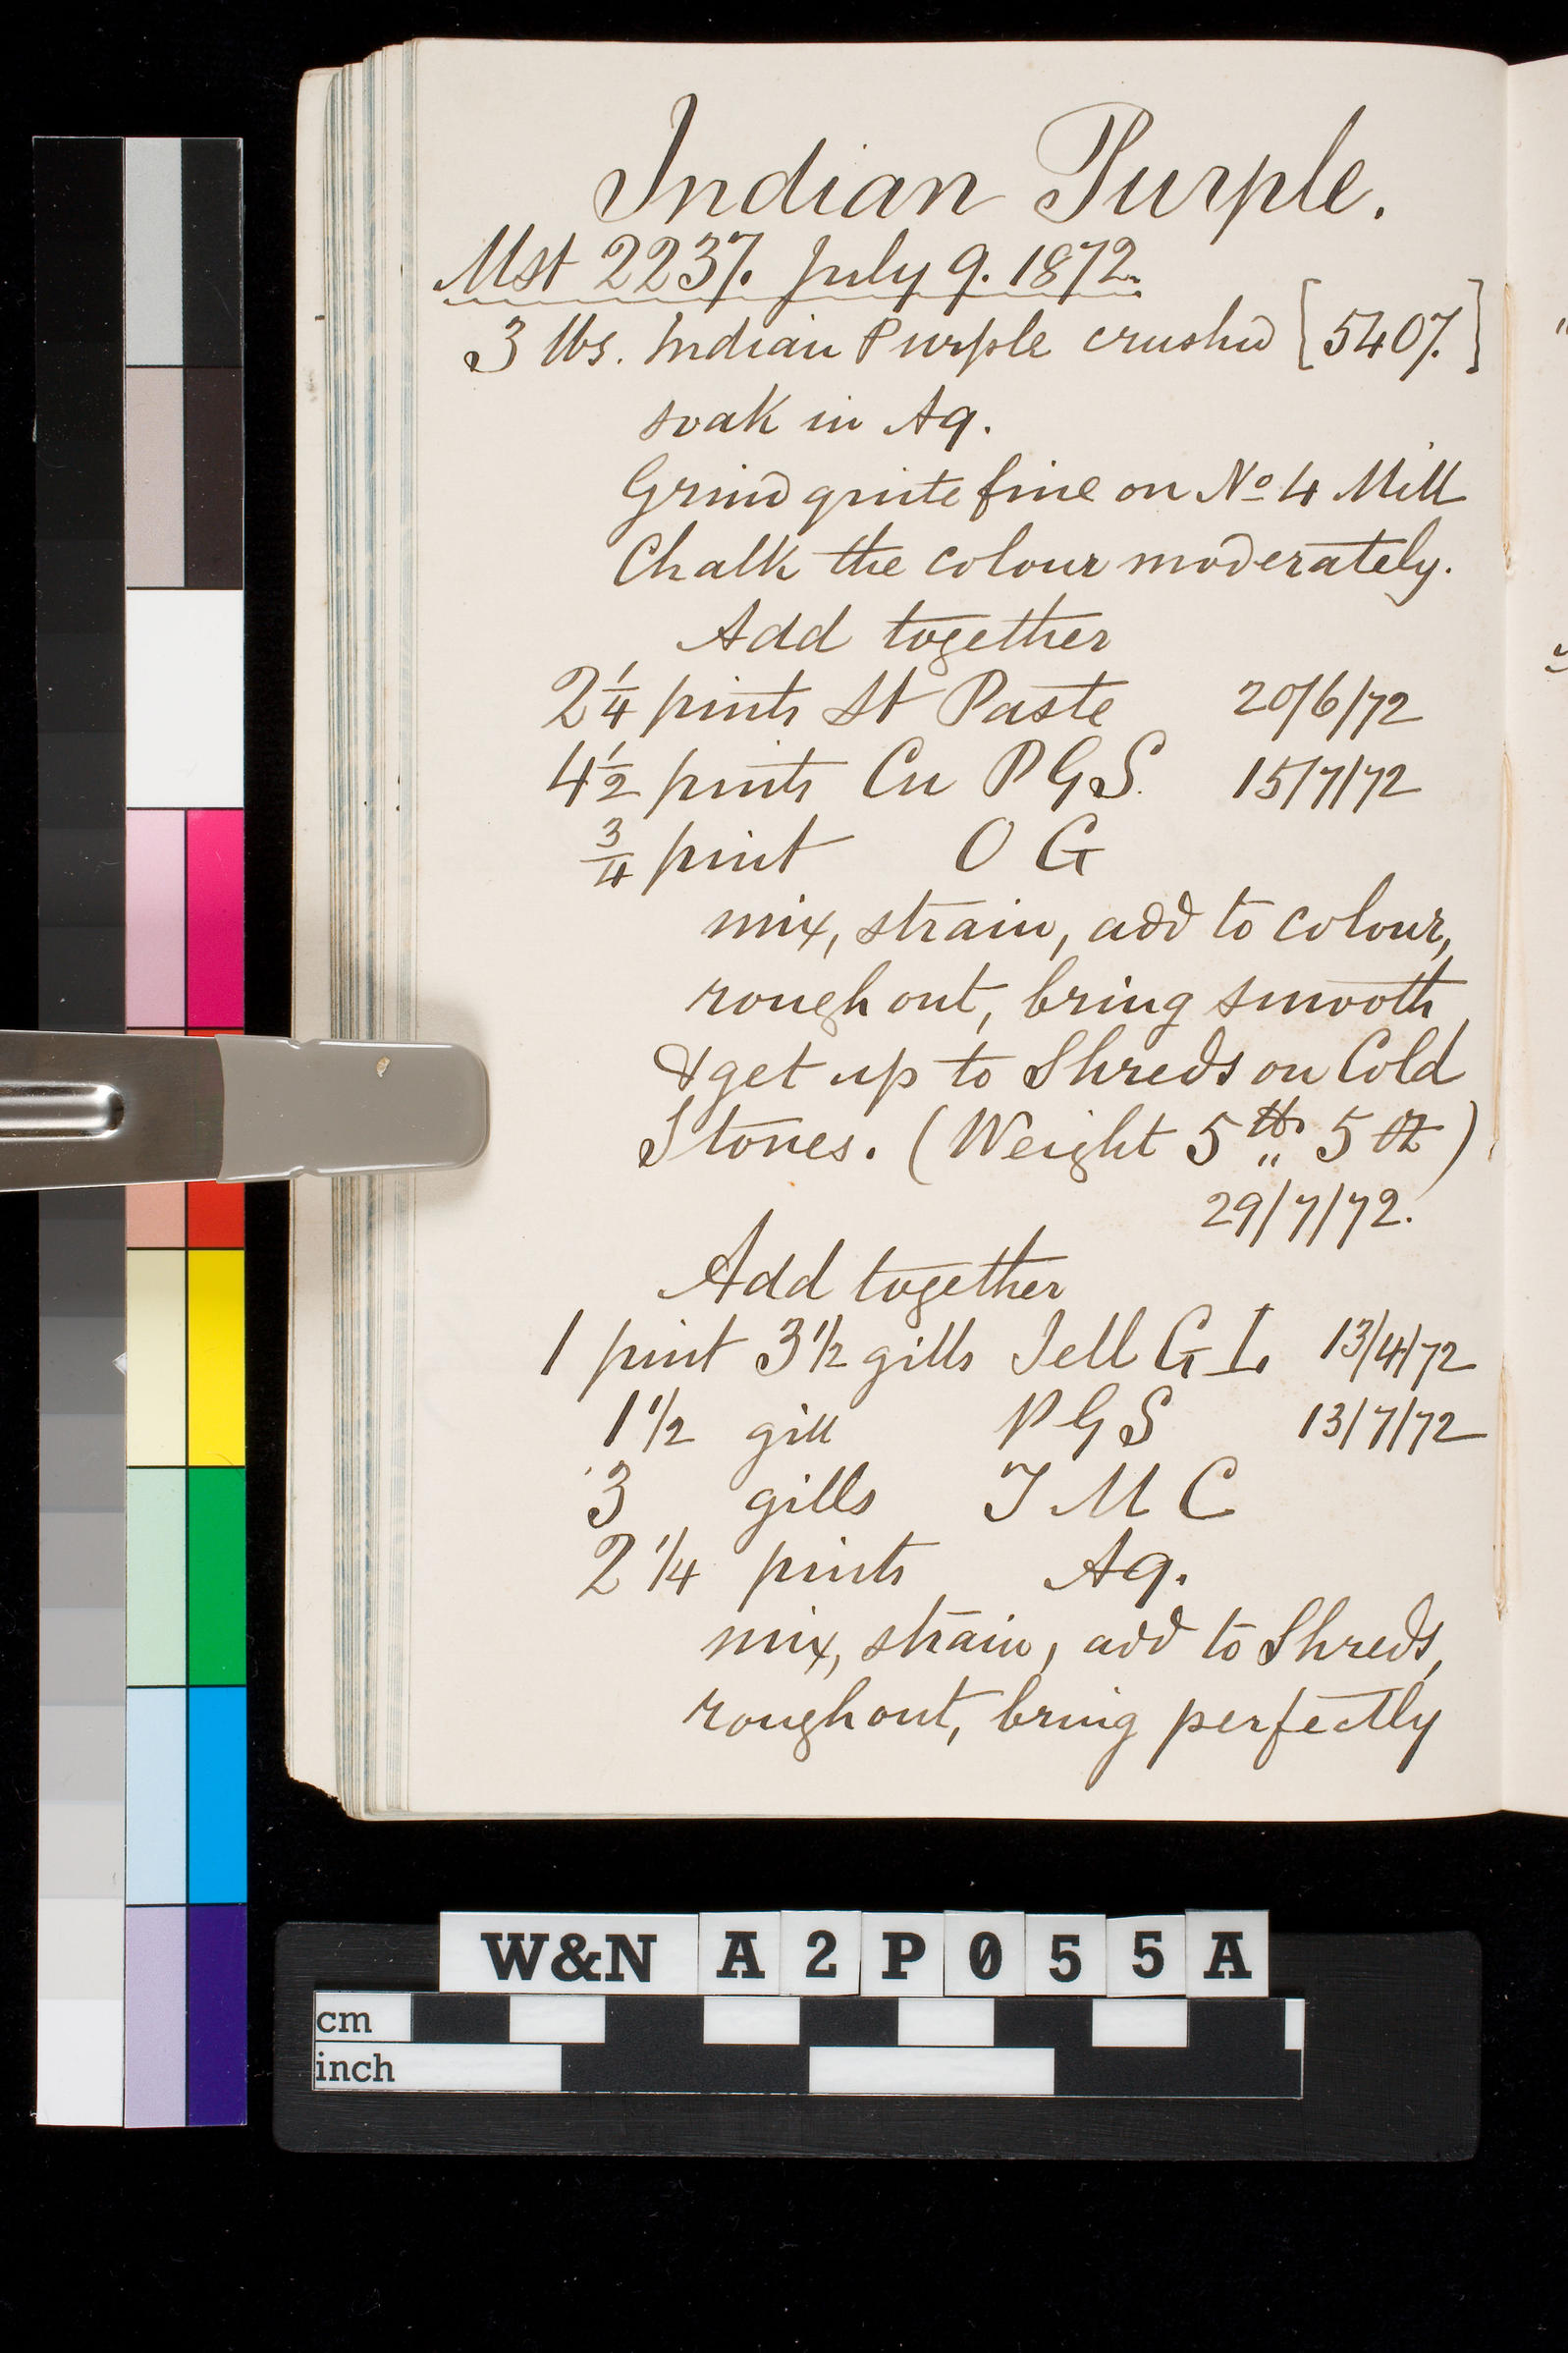 Indian Purple.
Mst 2237. July 9. 1872.
3 lbs. Indian Purple crushed [5407.]
soak in Aq.
Grind quite fine on No 4 Mill
Chalk the colour moderately.
Add together
2 1/4 pints St Paste 20/6/72
4 1/2 pints Cu P G S. 15/7/72
3/4 pint O G
mix, strain, add to colour,
rough out, bring smooth
& get up to Shreds on Cold
Stones. (Weight 5 lb 5 oz)
29/7/72.
Add together
1 pint 3 1/2 gills Jell G I. 13/4/72
1 1/2 gill P G S 13/7/72
3 gills T M C
2 1/4 pints Aq.
mix, strain, add to Shreds,
rough out, bring perfectly
W&N A2P055A
cm
inch